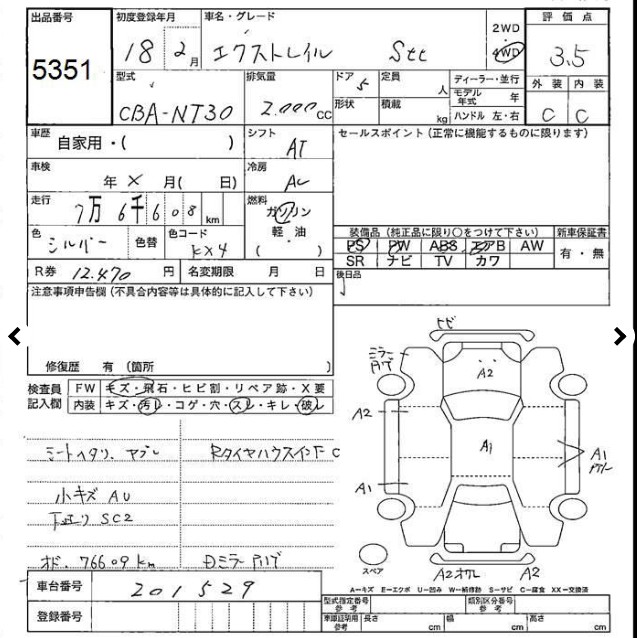 出品番号 初度登録年月 車名・グレード 評価点
5351 18 2月 エクストレイル Stt 2WD 4WD 3.5
型式 排気量 ドア 5 定員 人 ディーラー・並行 外装 内装
CBA-NT30 2.000cc 形状 積載 kg モデル年式 年 C C
ハンドル 左・右
車歴 自家用・( ) シフト AT セールスポイント(正常に機能するものに限ります)
車検 年 × 月( 日) 冷房 AC
走行 7万6千608km 燃料 ガソリン
軽・油
( )
色 シルバー 色替 色コード KX4
装備品(純正品に限り○をつけて下さい) 新車保証書
PS PW ABS エアB AW 有・無
SR ナビ TV カワ
R券 12.470円 名変期限 月 日 後日品
注意事項申告欄(不具合内容等は具体的に記入して下さい)
修復歴 有 (箇所 )
検査員記入欄 FW キズ・飛石・ヒビ割・リペア跡・X要
内装 キズ・汚レ・コゲ・穴・スレ・キレ・破レ
シートヘタリ、ヤブレ RタイヤハウスインナーC
小キズ AU
下廻り SC2
オド. 76609km
車台番号 201529
登録番号
トビ
ミラー
A2
A2
A1
A1
A1
スペア
A2 A2
A-キズ E-エクボ U-凹み W-補修跡 S-サビ C-腐食 XX-交換済
型式指定番号 参考 類別区分番号 参考
車庫証明用 参考 長さ cm 幅 cm 高さ cm